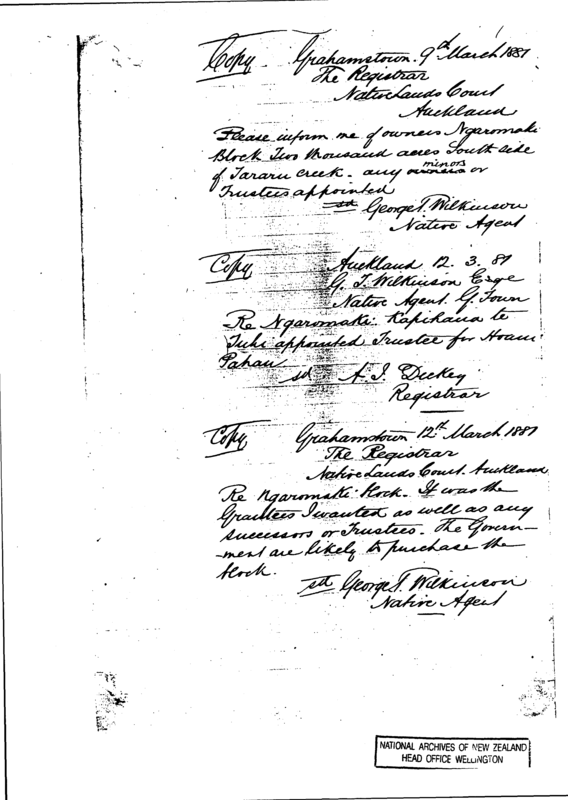 Copy Grahamstown. 9th March 1887
The Registrar
Native Lands Court
Auckland
Please inform me of owners Ngaromaki
Block Two thousand acres South side
of Tararu Creek. any owners minors or
Trustees appointed
sd George T. Wilkinson
Native Agent
Copy Auckland 12. 3. 87
G. T. Wilkinson Esqe
Native Agent. G. Town
Re Ngaromaki. Kapihana te
Tuhi appointed Trustee for Hoani
Pahau
sd A. J. Dickey
Registrar
Copy Grahamstown 12th March 1887
The Registrar
Native Lands Court. Auckland
Re Ngaromaki block. It was the
Grantees I wanted as well as any
successors or Trustees. The Govern-
-ment are likely to purchase the
block.
sd George T. Wilkinson
Native Agent
NATIONAL ARCHIVES OF NEW ZEALAND
HEAD OFFICE WELLINGTON